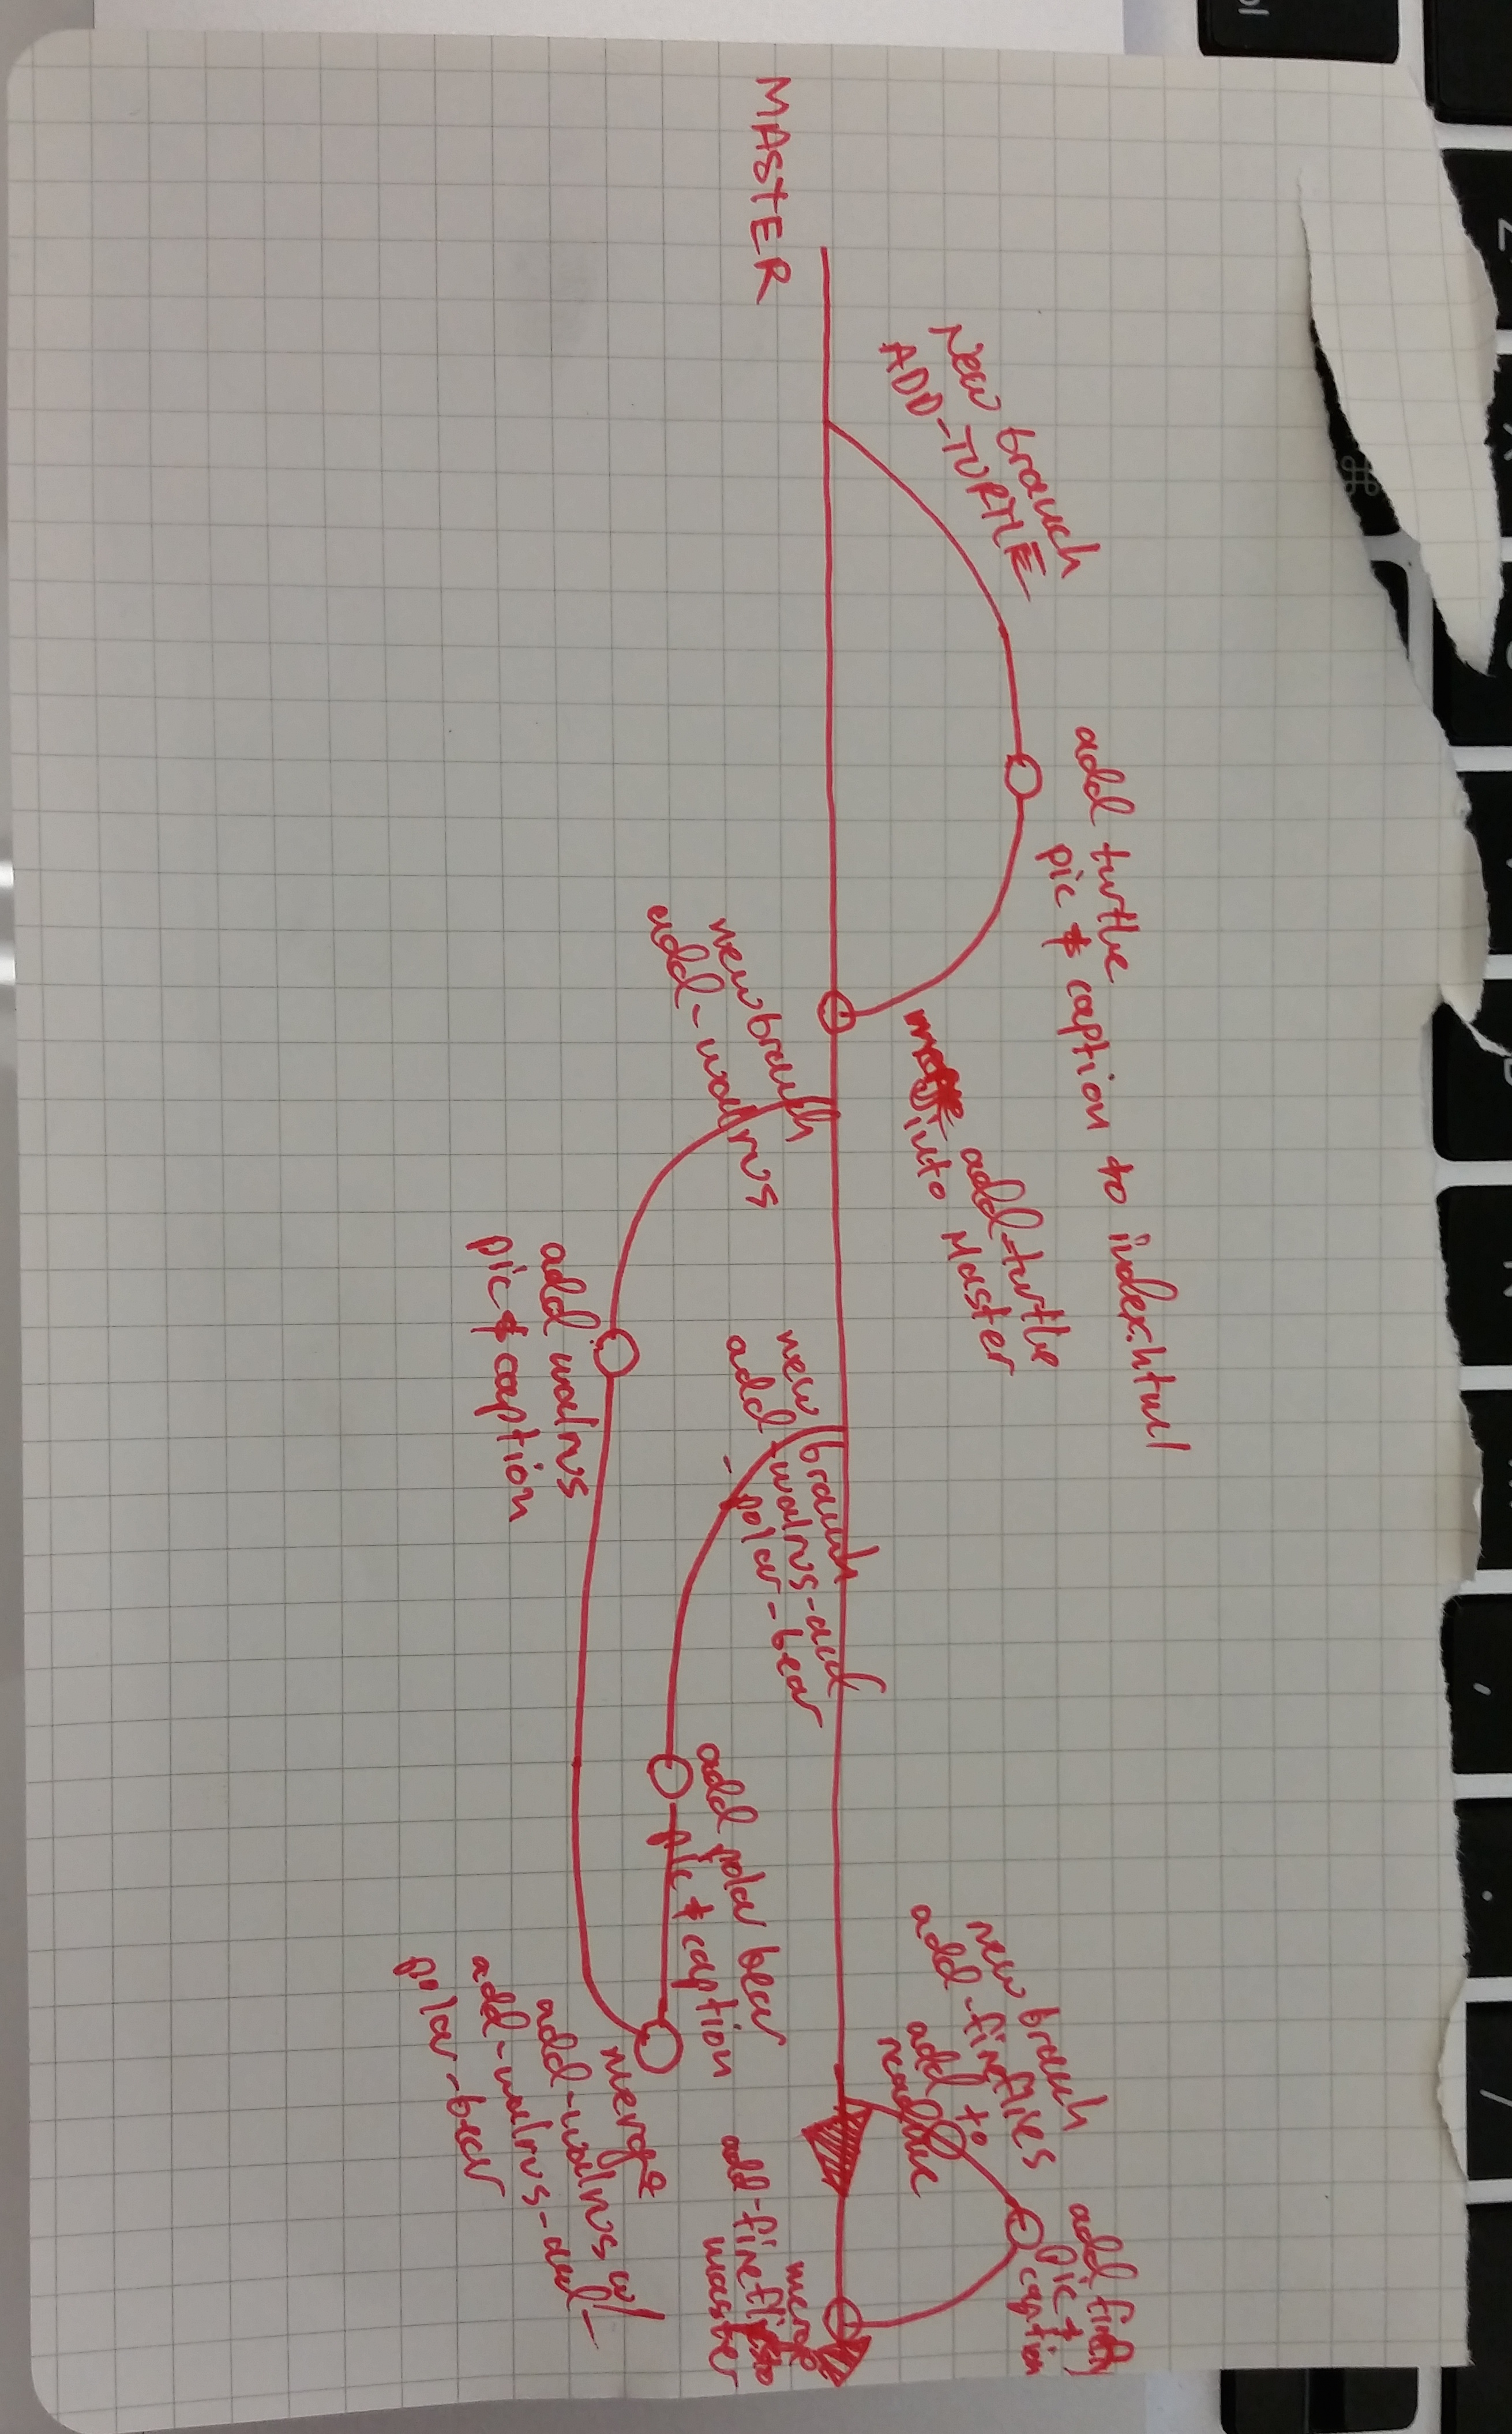 MASTER
New branch
ADD-TURTLE
add turtle
pic & caption to index.html
add-turtle
into Master
new branch
add-walrus
add walrus
pic & caption
new branch
add-walrus-and
-polar-bear
add polar bear
pic & caption
merge
add-walrus w/
add-walrus-and-
polar-bear
new branch
add-fireflies
add to
readme
add firefly
pic &
caption
merge
add-fireflies
master